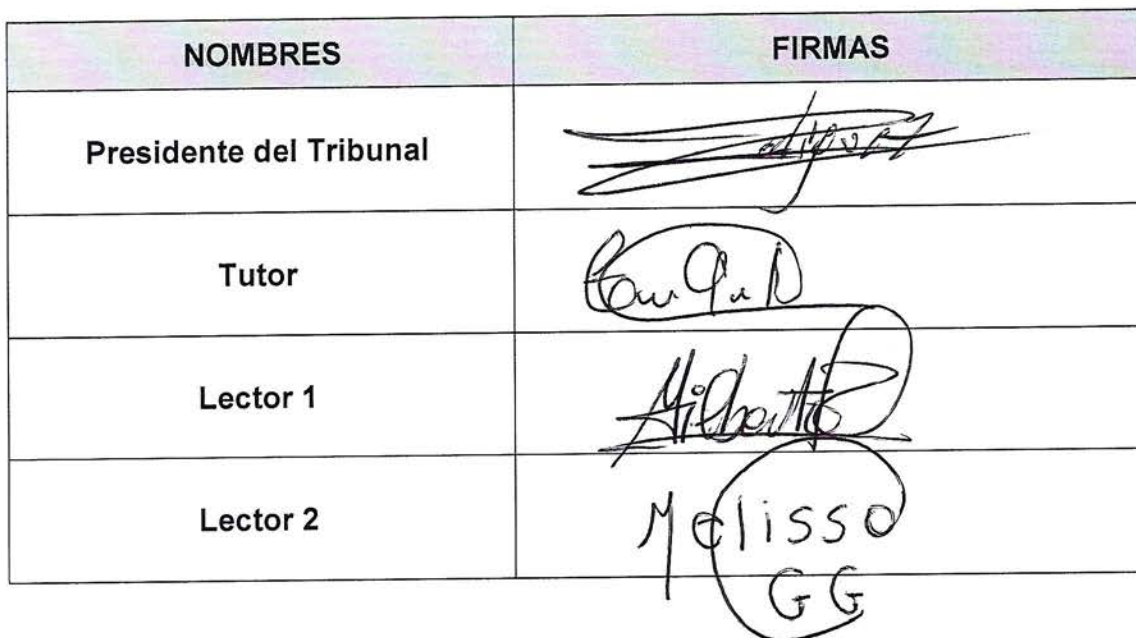 NOMBRES FIRMAS
Presidente del Tribunal
Tutor
Lector 1
Lector 2 Melissa
GG